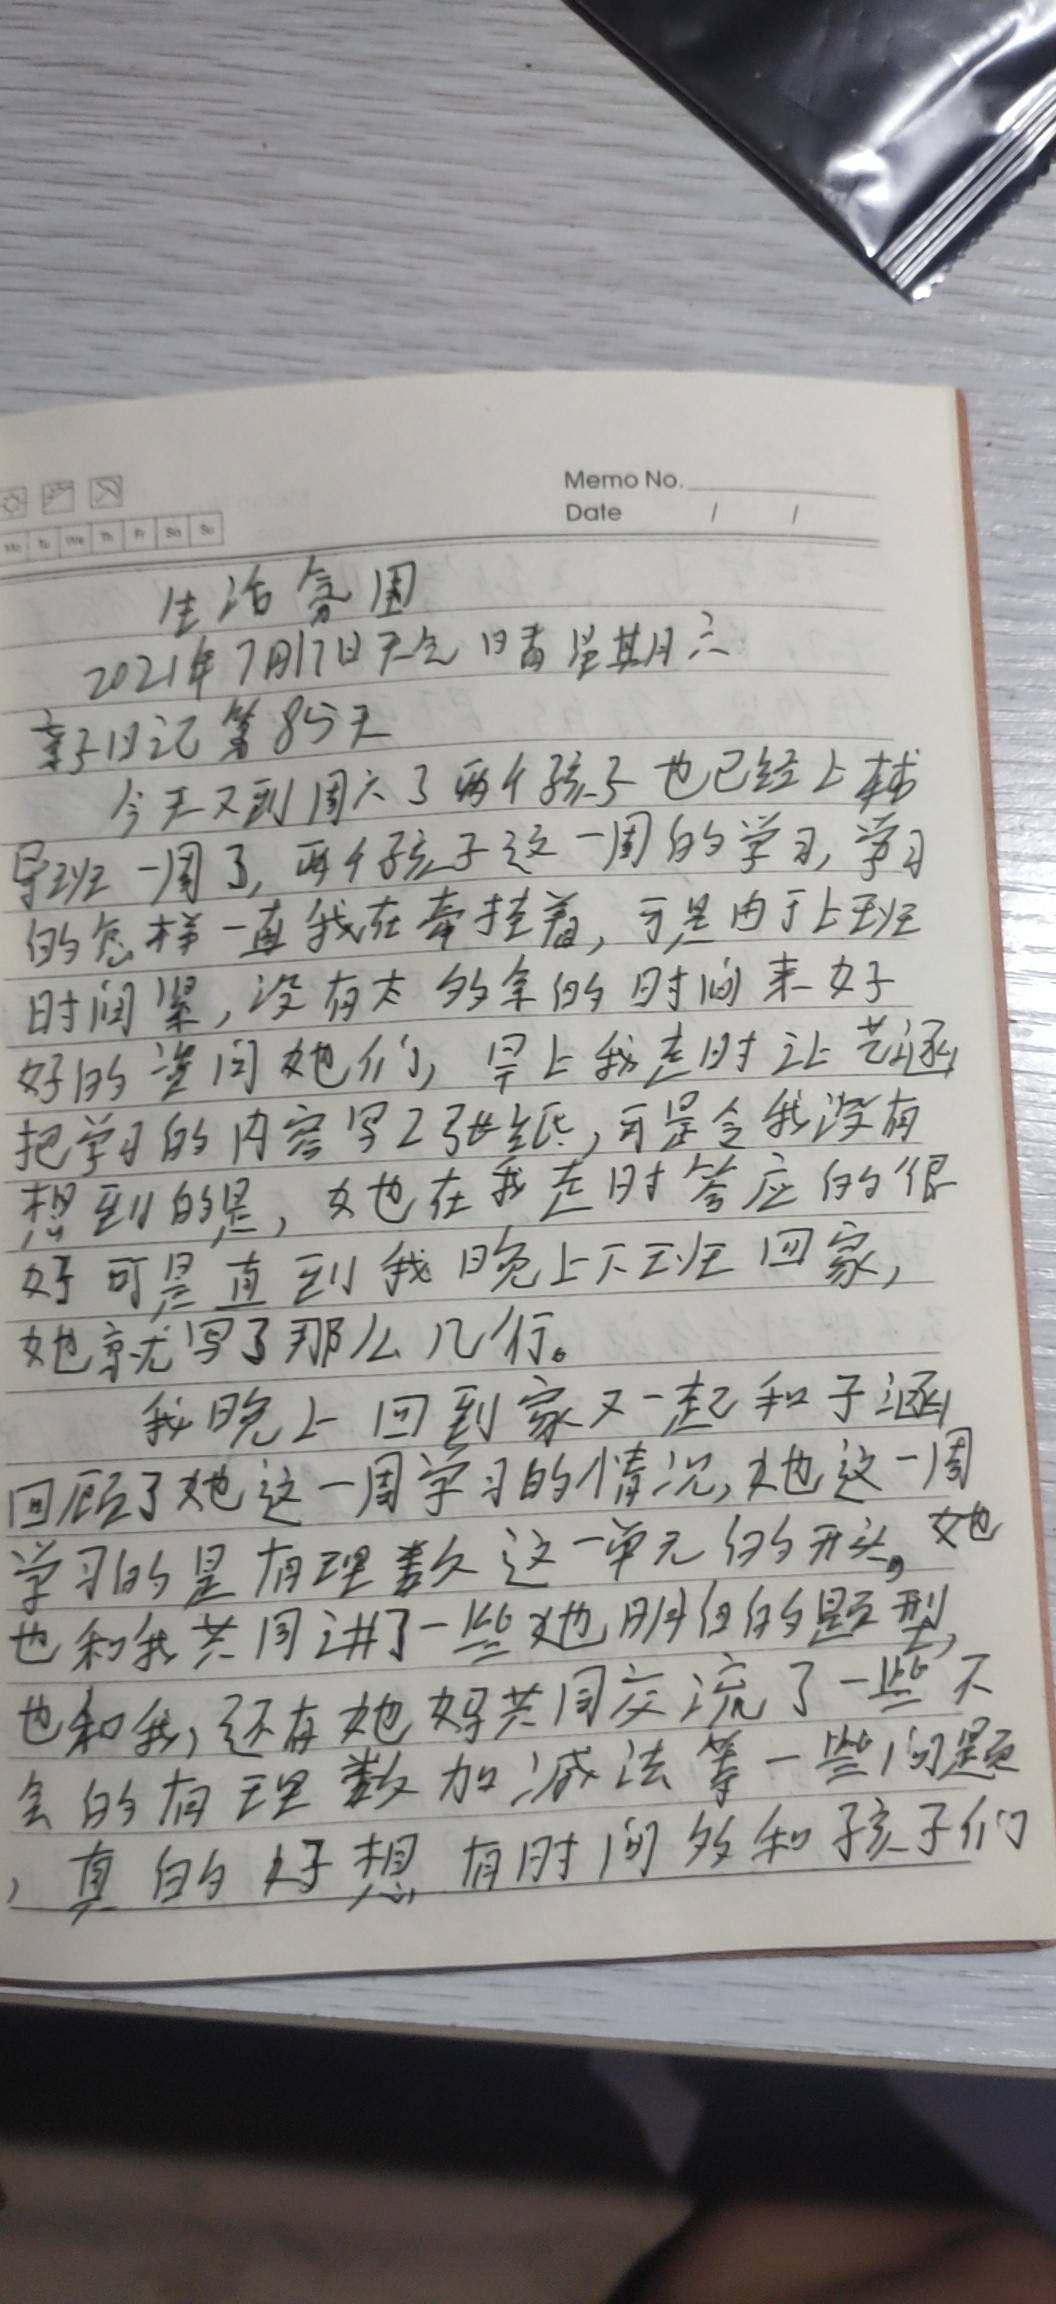 Memo No.
Date / /
Mo Tu We Th Fr Sa Su
生活氛围
2021年7月17日天气 晴 星期六
亲子日记第85天
今天又到周六了两个孩子也已经上辅
导班一周了,两个孩子这一周的学习,学习
的怎样一直我在牵挂着,可是由于上班
时间紧,没有太多余的时间来好
好的查问她们,早上我走时让艺涵
把学习的内容写2张纸,可是令我没有
想到的是,她在我走时答应的很
好可是直到我晚上下班回家,
她就写了那么几行。
我晚上回到家又一起和子涵
回顾了她这一周学习的情况,她这一周
学习的是有理数这一单元的形头。她
也和我共同讲了一些她明白的题型,
也和我,还有她妈共同交流了一些不
会的有理数加减法等一些问题
,真的好想有时间多和孩子们